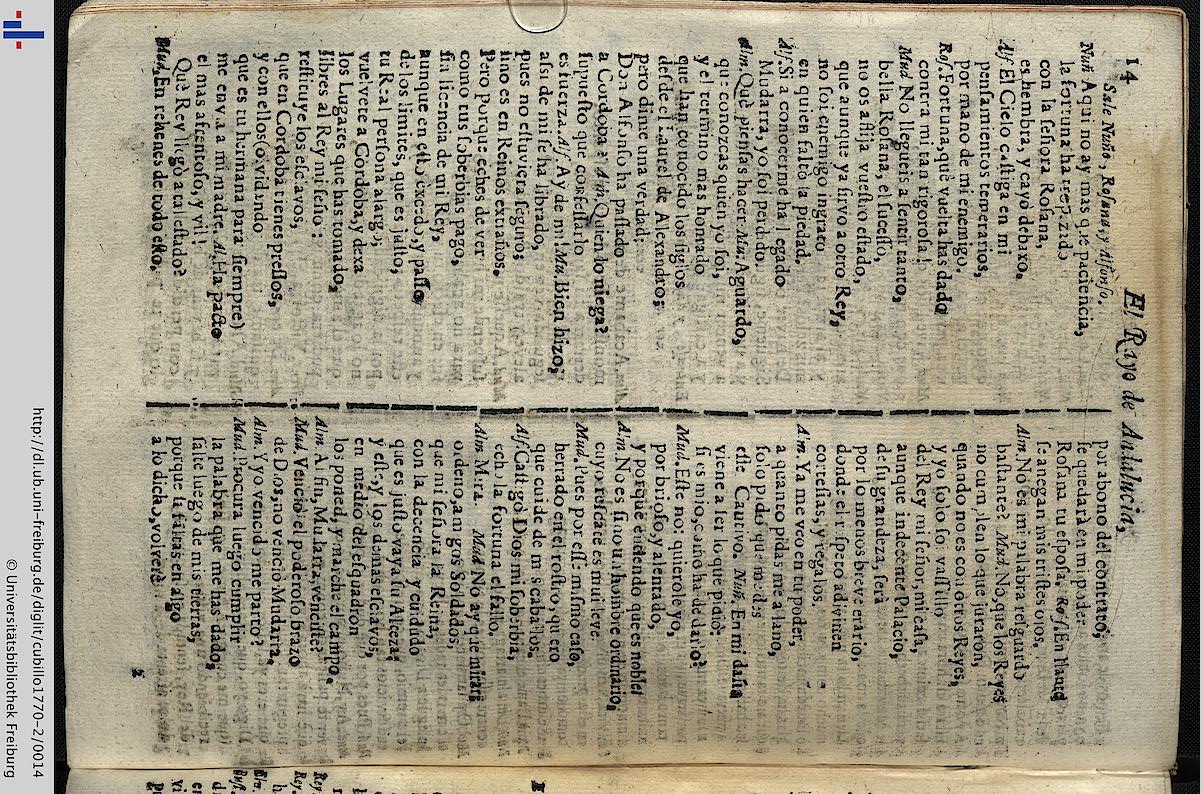 14
El Rayo de Andalucia,
Sale Nuño, Rosana, y Alfonso.
Nuñ. Aqui no ay mas que paciencia,
la fortuna ha
con la señora Rosana,
es hembra, y cayò debaxo.
Alf. El Cielo castiga en mi
pensamientos temerarios,
por mano de mi enemigo.
Ros. Fortuna, què vuelta has dado
contra mi tan rigorosa!
Mud. No llegueis a sentir tanto,
bella Rosana, el sucesso,
no os aflija vuestro estado,
que aunque ya sirvo a otro Rey,
no soi enemigo ingrato
en quien faltò la piedad.
Alf. Si a conocerme ha llegado
Mudarra, yo soi perdido.
Alm. Què piensas hacer? Mu. Aguardo,
que conozcas quien yo soi,
y el termino mas honrado
que han conocido los siglos
desde el laurel de Alexandro;
pero dime una verdad:
Don Alfonso ha passado
a Cordoba? Alm. Quien lo niega?
supuesto que confessarlo
es fuerza. Alf. Ay de mi! Mu. Bien hizo,
assi de mi se ha librado,
pues no estuviera seguro,
sino es en Reinos extraños.
Pero porque eches de ver
como tus soberbias pago,
sin licencia de mi Rey,
aunque en esto excedo, y passo
de los limites, que es justo,
tu Real persona alargo;
vuelvete a Cordoba, y dexa
los Lugares que has tomado,
libres al Rey mi señor:
restituye los esclavos,
que en Cordoba tienes pressos,
y con ellos (olvidando
que es tu hermana para siempre)
me envia a mi madre. Al. Ha pacto
el mas afrentoso, y vil!
Què Rey llegò a tal estado?
Mud. En rehenes de todo esto,
por abono del contrato,
se quedarà en mi poder
Rosana tu esposa. Ros. En llanto
se anegan mis tristes ojos.
Alm. No es mi palabra resguardo
bastante? Mud. No, que los Reyes
no cumplen lo que juraron,
quando no es con otros Reyes,
y yo solo soi vassallo
del Rey mi señor, mi casa,
aunque indecente Palacio,
de su grandeza, serà
por lo menos breve erario,
donde el respeto adivinen
cortesias, y regalos.
Alm. Ya me veo en tu poder,
a quanto pidas me allano,
solo pido que me des
este Cautivo. Nuñ. En mi daña
viene a ser lo que pidiò:
si es mio, como ha de darlo?
Mud. Este no: quierole yo,
por brioso, y alentado,
y porque entiendo que es noble.
Alm. No es sino un hombre ordinario,
cuyo rescate es mui leve.
Mud. Pues por esse mismo caso,
herrado en el rostro, quiero
que cuide de mis caballos.
Alf. Castigò Dios mi soberbia,
echò la fortuna el fallo.
Alm. Mira. Mud. No ay que mirar:
ordeno, amigos Soldados,
que mi señora la Reina,
con la decencia, y cuidado
que es justo vaya su Alteza;
y este, y los demas esclavos,
en medio del esquadron
los poned, y marche el campo.
Alm. Al fin, Mudarra, venciste?
Mud. Venciò el poderoso brazo
de Dios, no venciò Mudarra.
Alm. Y yo vencido me parto?
Mud. Procura luego cumplir
la palabra que me has dado,
salte luego de mis tierras,
porque si faltas en algo
a lo dicho, volverè
à
http://dl.ub.uni-freiburg.de/diglit/cubillo1770-2/0014
© Universitätsbibliothek Freiburg